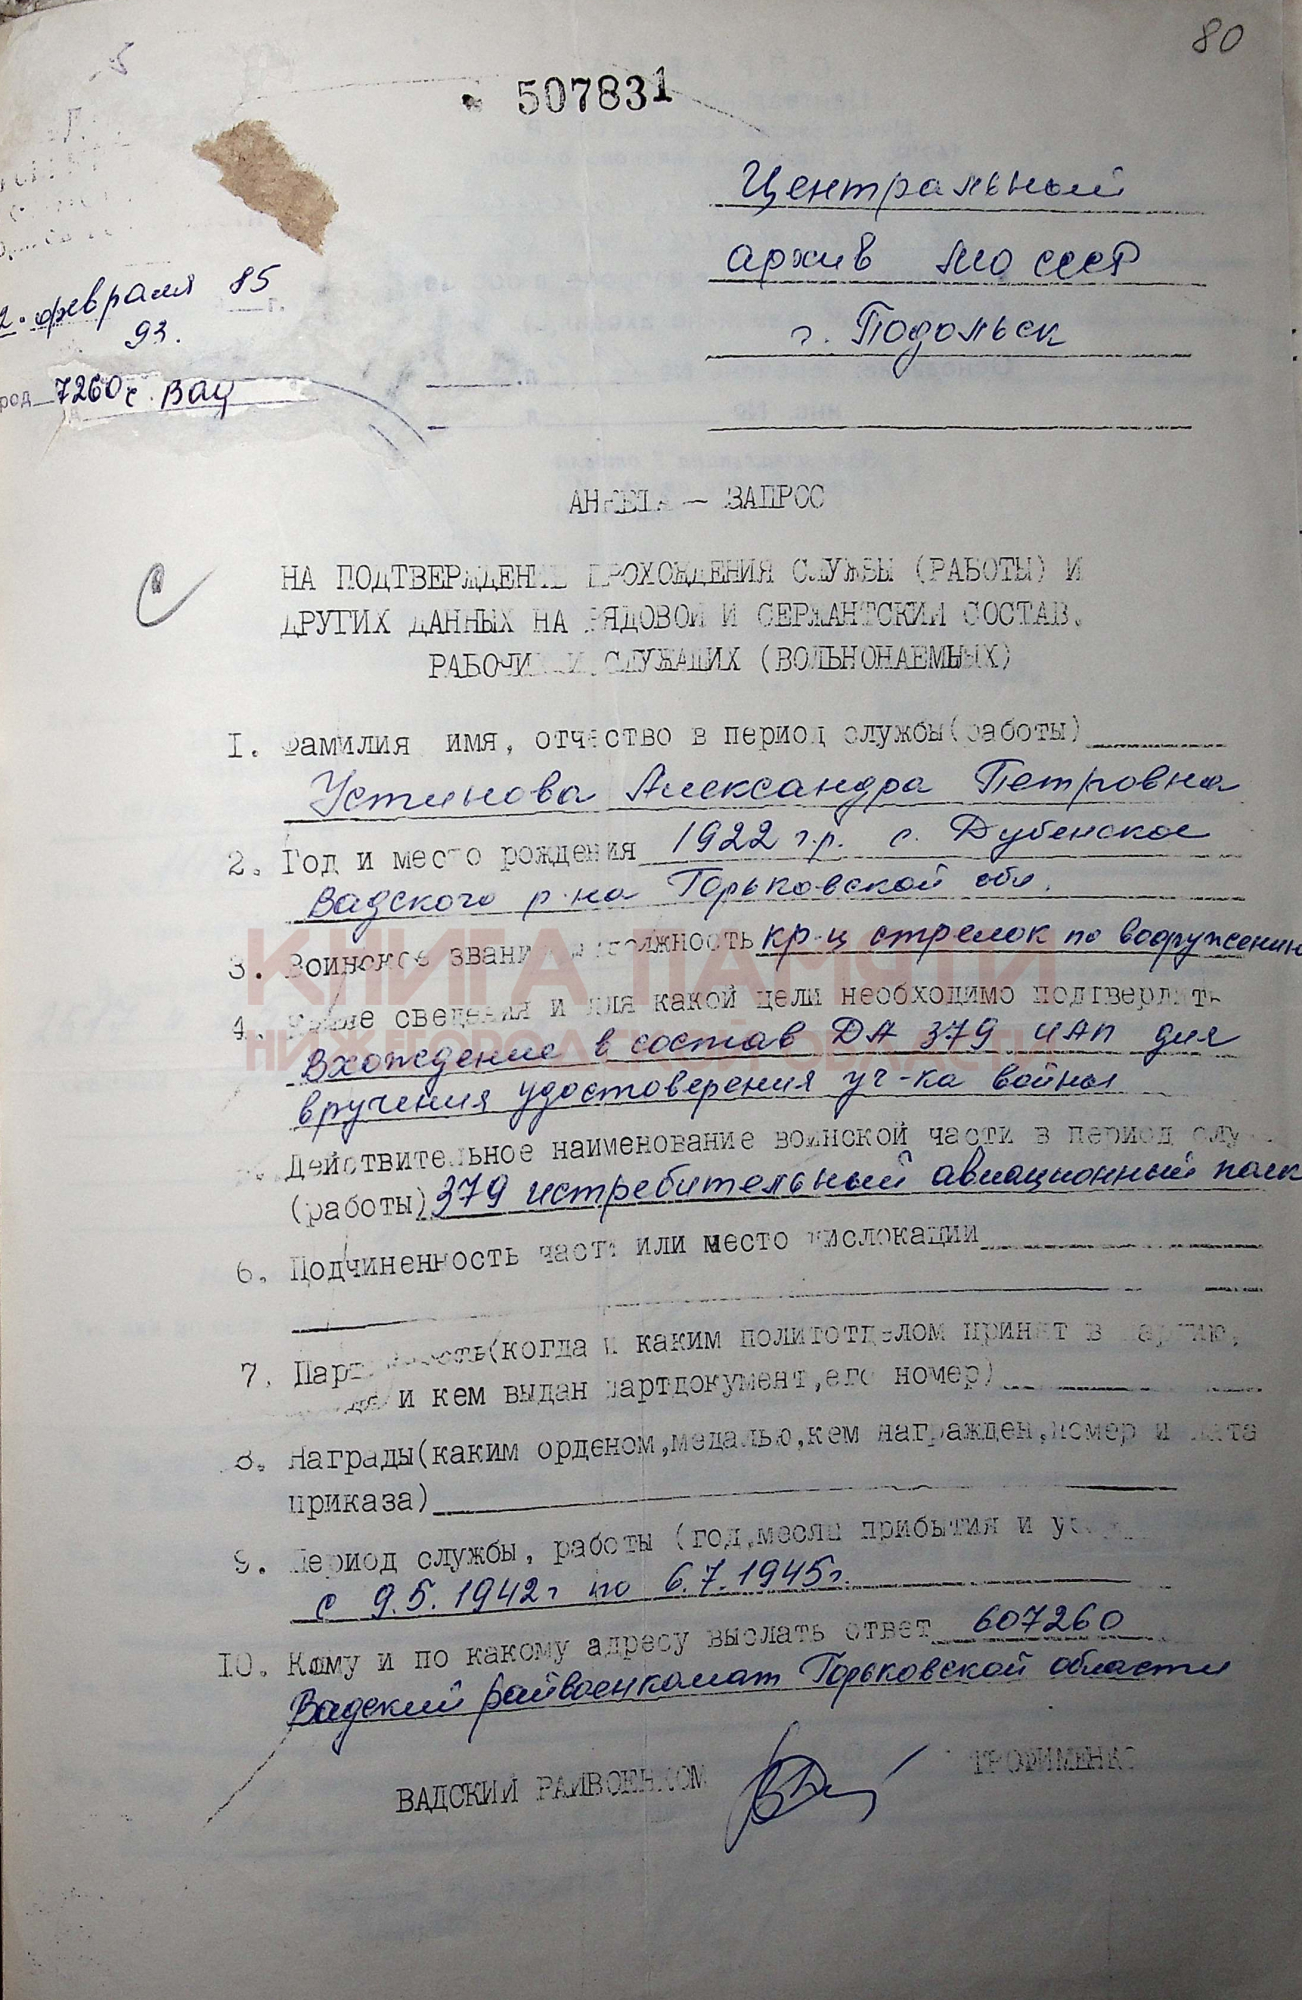 80
507831
Центральный
архив МО СССР
г. Подольск
2. февраля 85
93.
род 7260 с. Вад
АНКЕТА — ЗАПРОС
НА ПОДТВЕРЖДЕНИЕ ПРОХОЖДЕНИЯ СЛУЖБЫ (РАБОТЫ) И
ДРУГИХ ДАННЫХ НА РЯДОВОЙ И СЕРЖАНТСКИЙ СОСТАВ,
РАБОЧИХ И СЛУЖАЩИХ (ВОЛЬНОНАЕМНЫХ)
I. Фамилия имя, отчество в период службы(работы)
Устинова Александра Петровна
2. Год и место рождения 1922 г.р. с. Дубенское
Вадского р-на Горьковской обл.
КНИГА ПАМЯТИ
НИЖЕГОРОДСКОЙ ОБЛАСТИ
3. Воинское звание должность кр-ц стрелок по вооружению
4. Какие сведения и для какой цели необходимо подтвердить
Вхождение в состав ДА 379 ИАП для
вручения удостоверения уч-ка войны
Действительное наименование воинской части в период слу
(работы) 379 истребительный авиационный полк
6. Подчиненность части или место дислокации
7. Партийность(когда и каким политотделом принят в партию,
и кем выдан партдокумент,его номер)
8. Награды(каким орденом,медалью,кем награжден,номер и дата
приказа)
9. Период службы, работы (год,месяц прибытия и
с 9.5.1942г по 6.7.1945г.
10. Кому и по какому адресу выслать ответ 607260
Вадский райвоенкомат Горьковской области
ВАДСКИЙ РАЙВОЕНКОМ ТРОФИМЕНКО